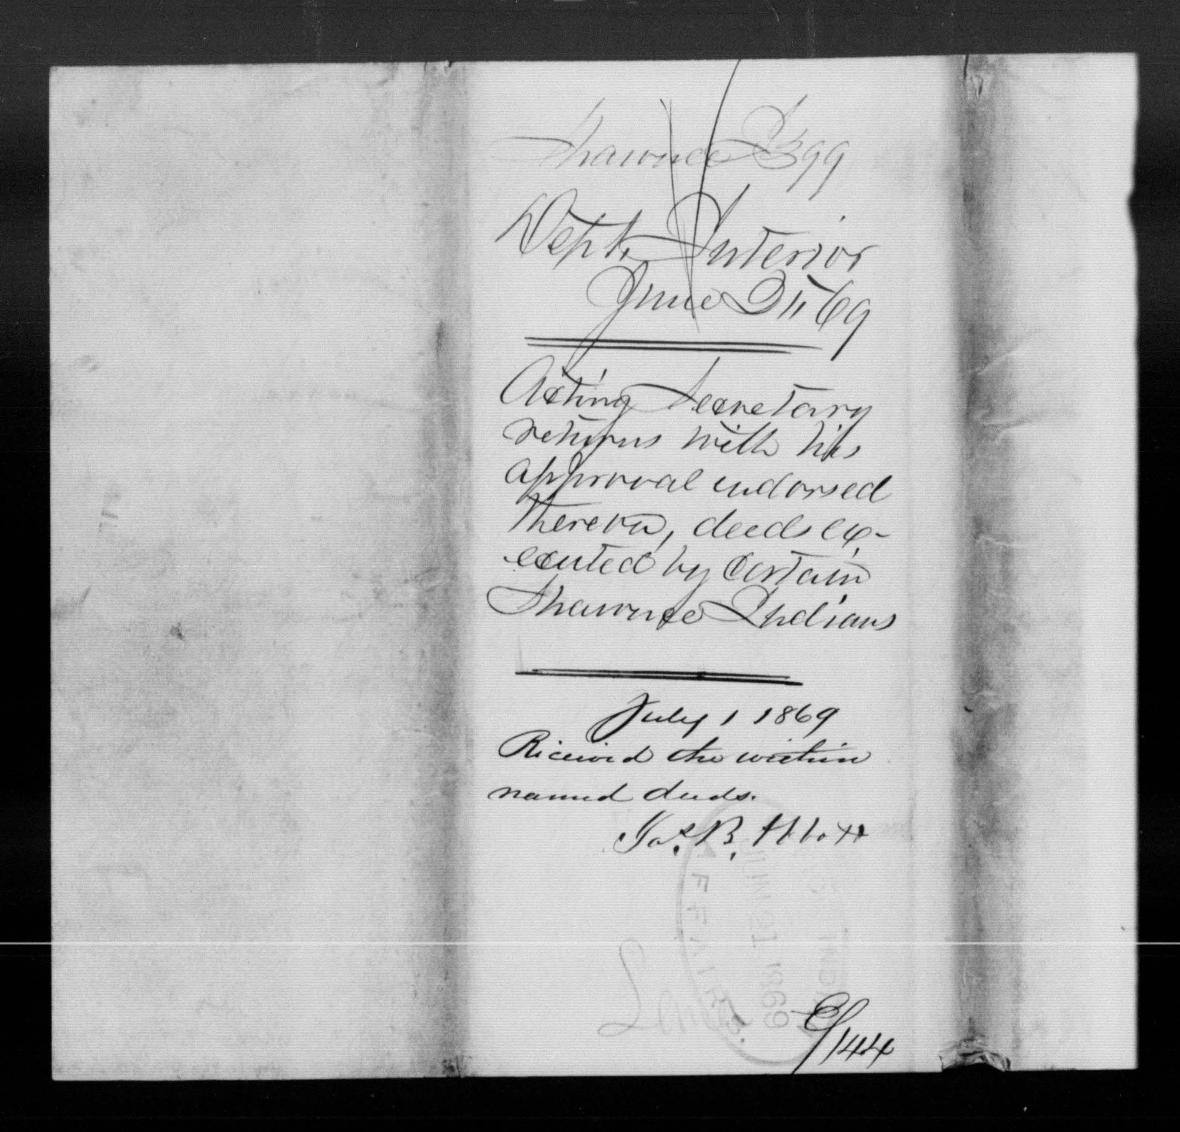 Shawnee I399
Dept. Interior
June 3" 69
Acting Secretary
returns with his
approval endorsed
thereon, deeds ex-
ecuted by certain
Shawnee Indians
July 1 1869
Received the within
named deeds.
Jas. B. Abbott
AFFAIRS.
1869
Land
E/144